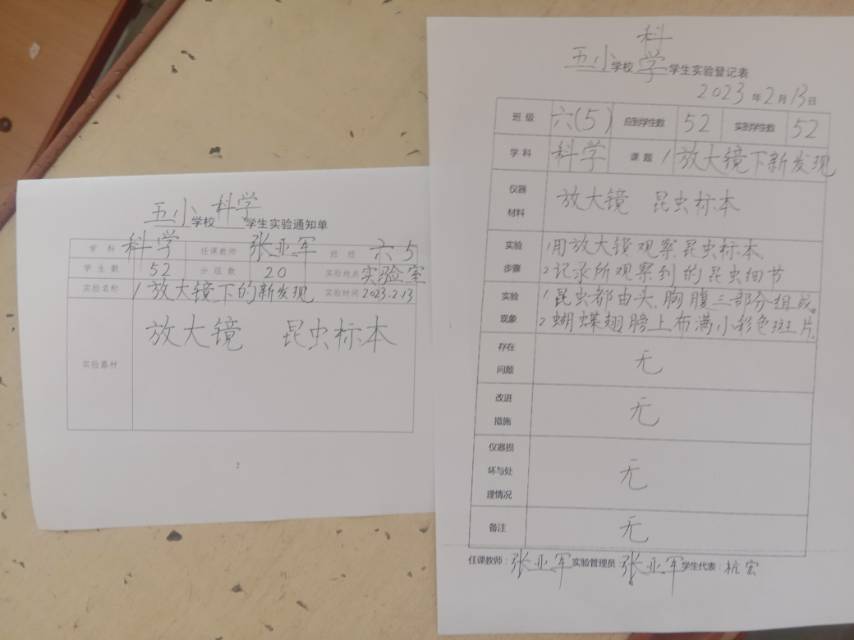 五小学校科学学生实验通知单
学科 科学 任课教师 张亚军 班级 六5
学生数 52 分组数 20 实验地点 实验室
实验名称 1放大镜下的新发现 实验时间 2023.2.13
实验器材 放大镜 昆虫标本
2
五小学校科学学生实验登记表
2023年2月13日
班级 六(5) 应到学生数 52 实到学生数 52
学科 科学 课题 1放大镜下新发现
仪器材料 放大镜 昆虫标本
实验步骤 1用放大镜观察昆虫标本
2记录所观察到的昆虫细节
实验现象 1昆虫都由头胸腹三部分组成。
2蝴蝶翅膀上布满小彩色斑片
存在问题 无
改进措施 无
仪器损坏与处理情况 无
备注 无
任课教师:张亚军 实验管理员:张亚军 学生代表:杭宏